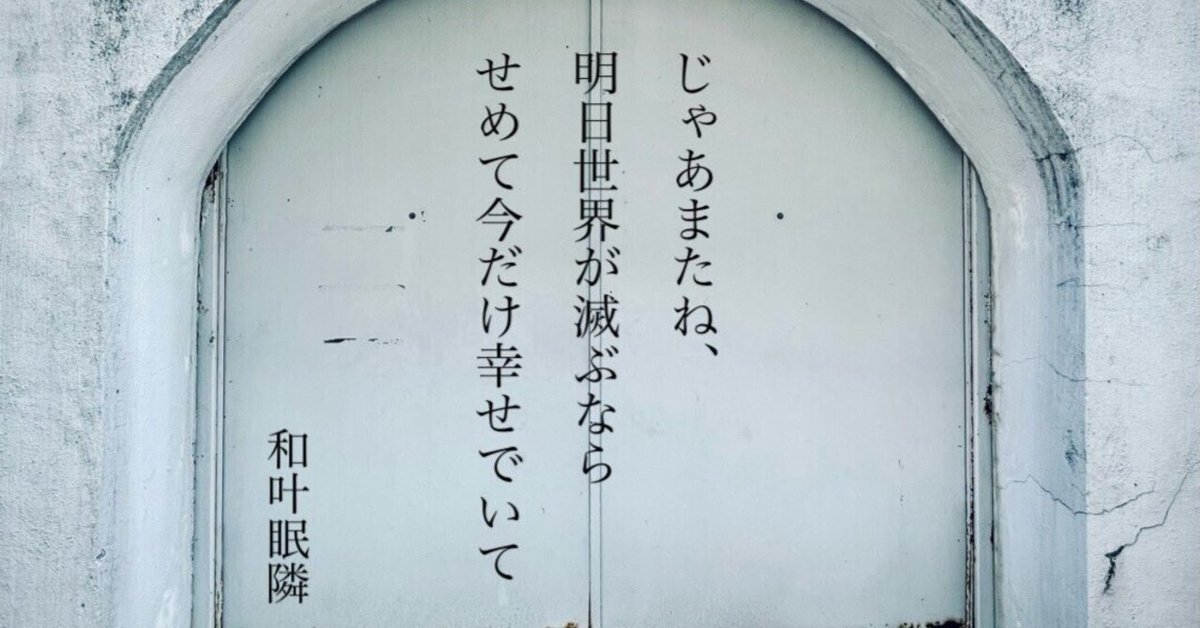 じゃあまたね、
明日世界が滅ぶなら
せめて今だけ幸せでいて
和叶眠隣